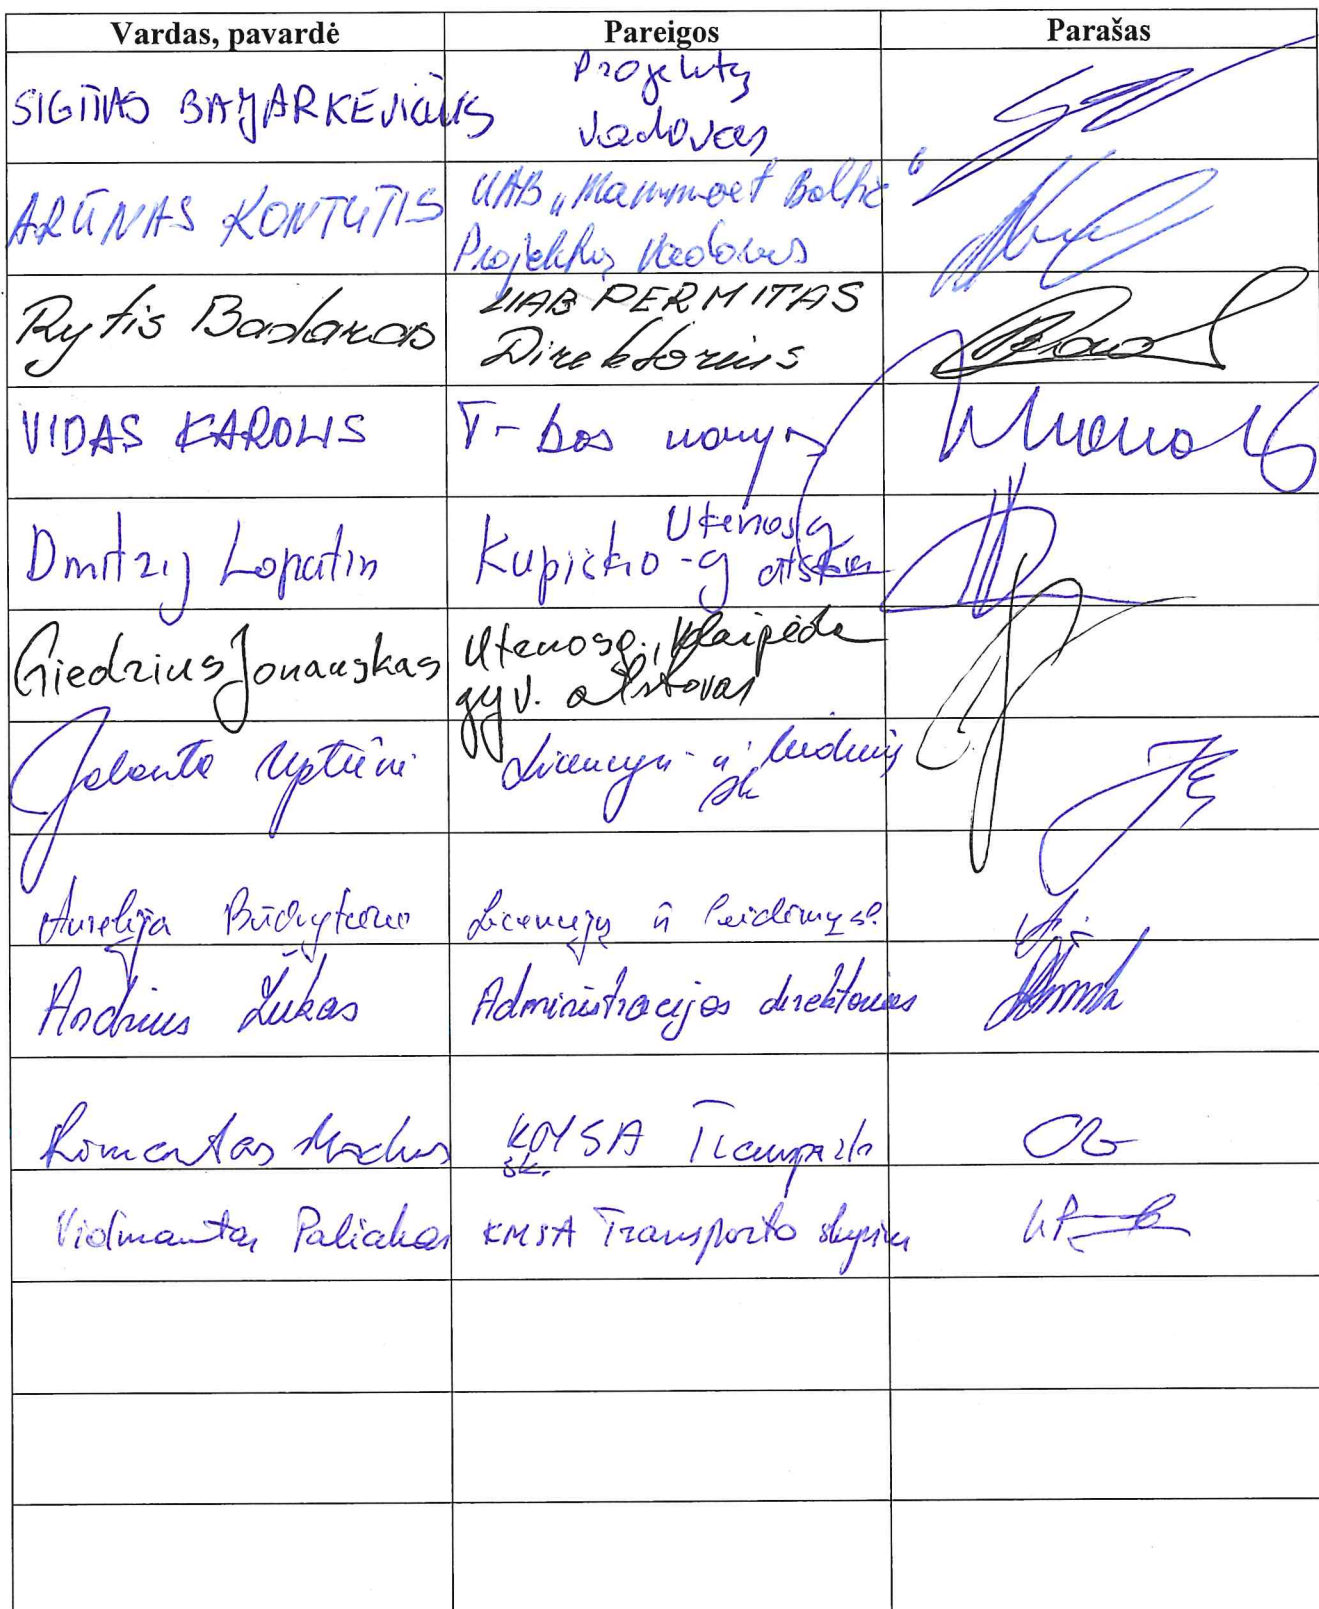 Vardas, pavardė Pareigos Parašas
SIGITAS BAJARKEVIČIUS Projektų
vadovas
ARŪNAS KONTUTIS UAB „Mammoet Baltic“
Projektų vadovas
Rytis Badaras UAB PERMITAS
Direktorius
VIDAS KAROLIS T-bos narys
Dmitrij Lopatin Kupiskio-g Utenos g
atstovas
Giedrius Jonauskas Utenos g., Klaipėda
gyv. atstovas
Jolanta Licencijų ir leidimų
sk
Aurelija Licencijų ir leidimų s.
Andrius Lukas Administracijos direktorius
Rimantas KMSA Transporto
sk.
Vidmantas Paliakas KMSA Transporto skyrius